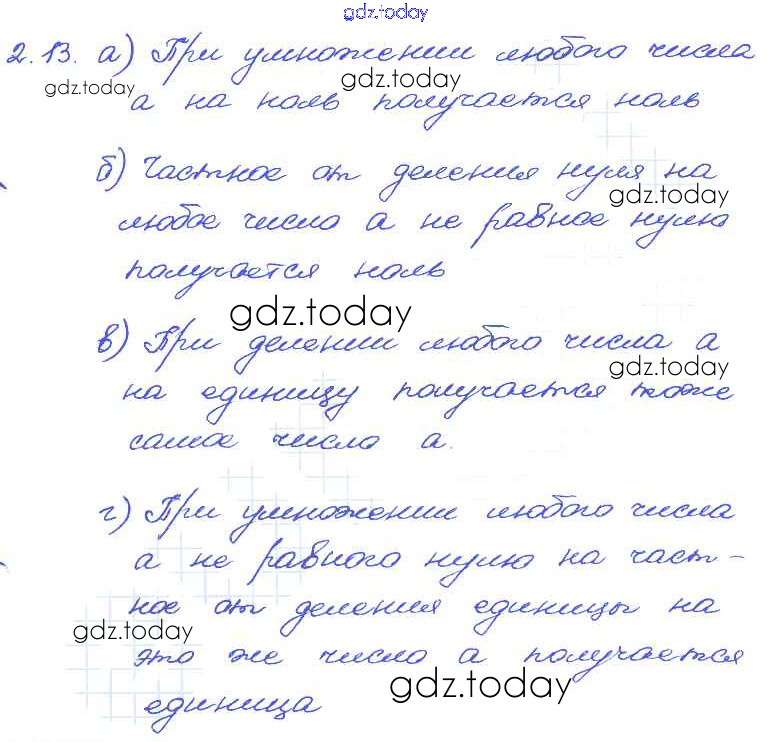 gdz.today
2.13. а) При умножении любого числа
gdz.today gdz.today
а на ноль получается ноль
б) Частное от деления нуля на
gdz.today
любое число а не равное нулю
получается ноль
gdz.today
в) При делении любого числа а
gdz.today
на единицу получается тоже
самое число а.
г) При умножении любого числа
а не равного нулю на част-
ное от деления единицы на
gdz.today
это же число а получается
gdz.today
единица